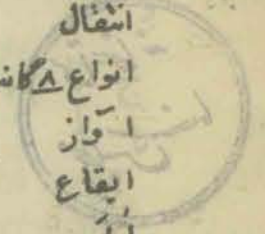 انتقال
انواع ۸ گانه
آواز
ایقاع